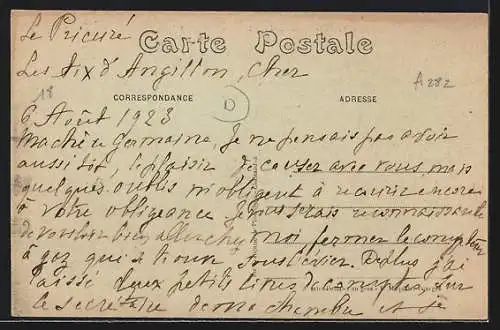 Le Prieuré
Carte Postale
Les Aix d'Angillon, Cher
18
A 282
CORRESPONDANCE
D
ADRESSE
6 Août 1923
Ma chère Germaine, Je ne pensais pas avoir
aussitôt, le plaisir de causer avec vous, mais
quelques oublis m'obligent à recourir encore
à votre obligeance Je vous serais reconnaissante
de vouloir bien aller chez moi, fermer le compteur
à gaz qui se trouve sous l'évier. De plus j'ai
laissé deux petits livres de comptes sur
le secrétaire de ma chambre et je